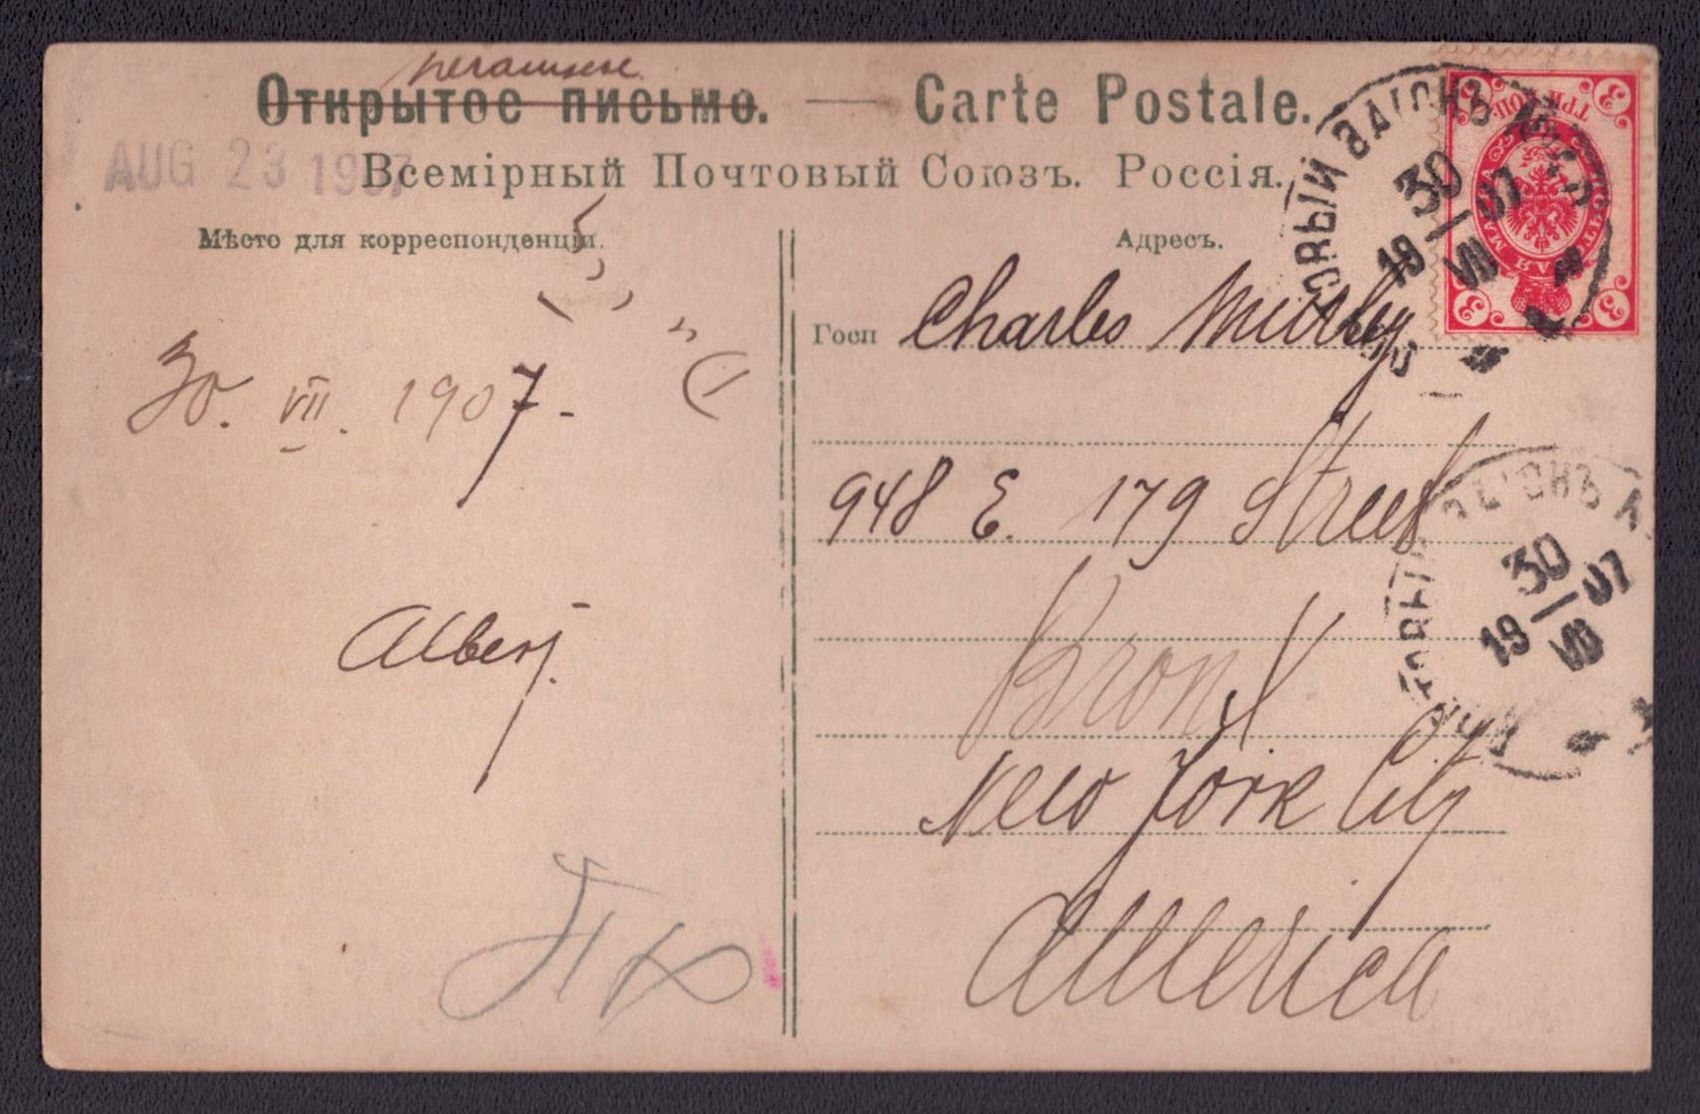 Открытое письмо. — Carte Postale.
AUG 23 1907
Всемірный Почтовый Союзъ. Россія.
Мѣсто для корреспонденціи.
Адресъ.
30. VII. 1907.
Albert.
Госп Charles
948 E. 179 Street
Bronx
New York City
America
ПОЧТОВЫЙ ВАГОНЪ
30
VII
19 07
3 3
ТРИ КОП
МАРКА
3 3
ПОЧТОВЫЙ ВАГОНЪ
30
VII
19 07